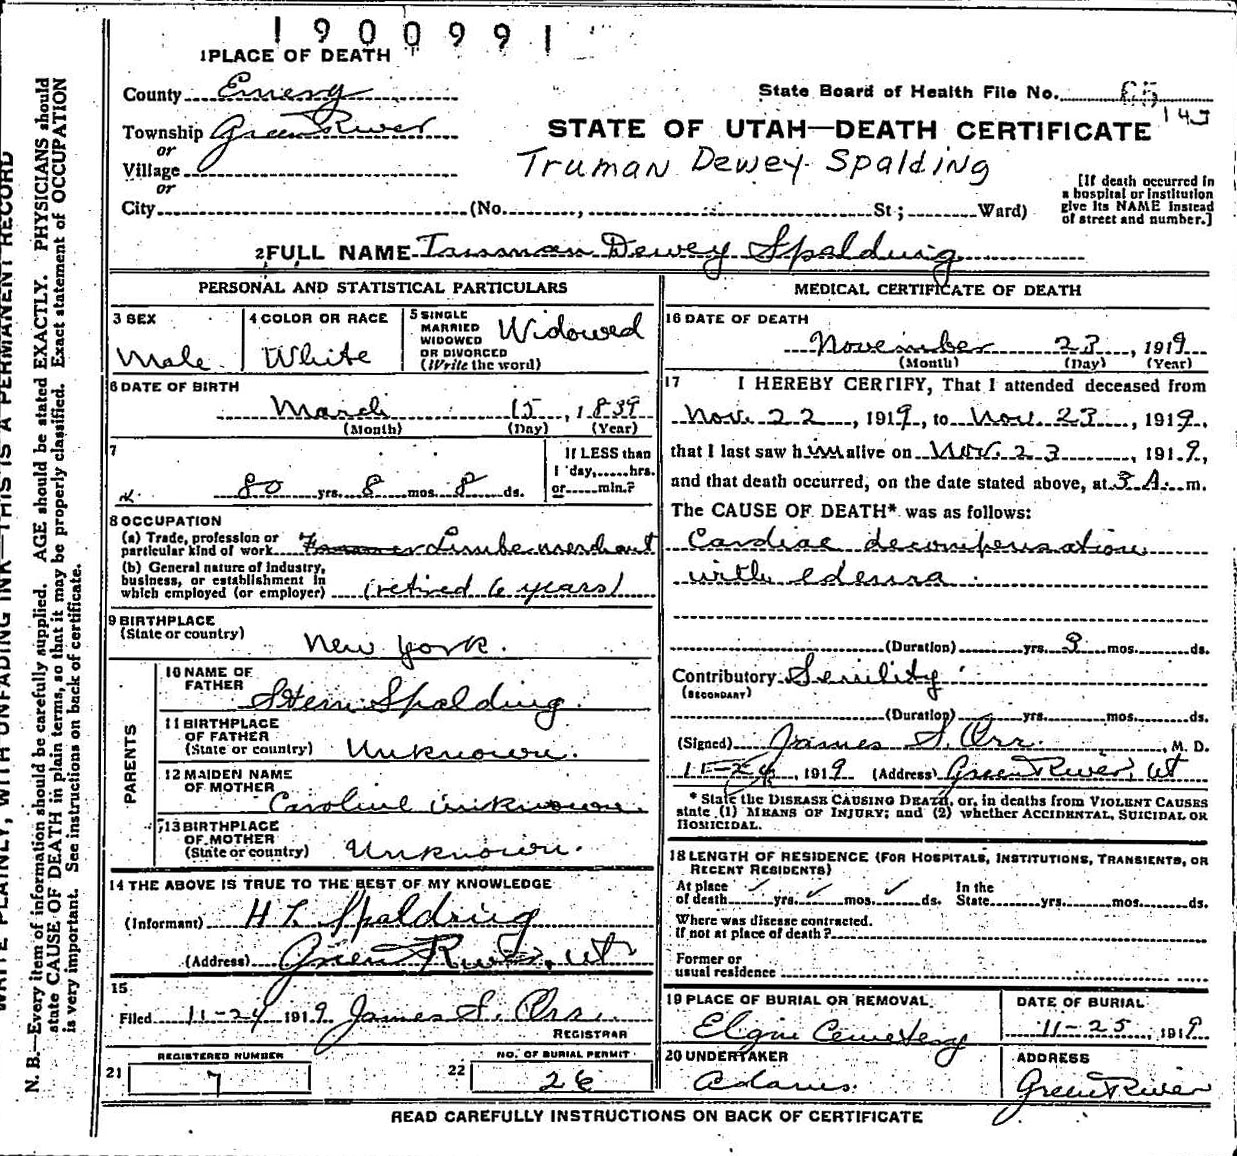 1900991
1 PLACE OF DEATH
County Emery
State Board of Health File No.
143
Township Green River
STATE OF UTAH—DEATH CERTIFICATE
or
Truman Dewey Spalding
Village
or
City (No. , St; Ward)
[If death occurred in
a hospital or institution
give its NAME instead
of street and number.]
2 FULL NAME Truman Dewey Spalding
PERSONAL AND STATISTICAL PARTICULARS
3 SEX
Male
4 COLOR OR RACE
White
5 SINGLE
MARRIED
WIDOWED
OR DIVORCED
(Write the word)
Widowed
6 DATE OF BIRTH
March 15, 1839
(Month) (Day) (Year)
7
80 yrs. 8 mos. 8 ds.
If LESS than
1 day,......hrs.
or......min.?
8 OCCUPATION
(a) Trade, profession or
particular kind of work Farmer Lumber merchant
(b) General nature of industry,
business, or establishment in
which employed (or employer) (retired 6 years)
9 BIRTHPLACE
(State or country) New York.
PARENTS
10 NAME OF
FATHER
Spalding.
11 BIRTHPLACE
OF FATHER
(State or country) Unknown.
12 MAIDEN NAME
OF MOTHER
Caroline unknown.
13 BIRTHPLACE
OF MOTHER
(State or country) Unknown.
14 THE ABOVE IS TRUE TO THE BEST OF MY KNOWLEDGE
(Informant) H L Spalding
(Address) Green River, Ut
15
Filed 11-24 1919 James S. Orr.
REGISTRAR
21 REGISTERED NUMBER
7
22 NO. OF BURIAL PERMIT
26
MEDICAL CERTIFICATE OF DEATH
16 DATE OF DEATH
November 23, 1919
(Month) (Day) (Year)
17 I HEREBY CERTIFY, That I attended deceased from
Nov. 22, 1919, to Nov. 23, 1919,
that I last saw him alive on Nov. 23, 1919,
and that death occurred, on the date stated above, at 3 A. m.
The CAUSE OF DEATH* was as follows:
Cardiac decompensation
with edema.
(Duration) yrs. mos. ds.
Contributory Senility
(SECONDARY)
(Duration) yrs. mos. ds.
(Signed) James S. Orr. , M. D.
11-24, 1919 (Address) Green River, Ut
* State the DISEASE CAUSING DEATH, or, in deaths from VIOLENT CAUSES
state (1) MEANS OF INJURY; and (2) whether ACCIDENTAL, SUICIDAL OR
HOMICIDAL.
18 LENGTH OF RESIDENCE (FOR HOSPITALS, INSTITUTIONS, TRANSIENTS, OR
RECENT RESIDENTS)
At place In the
of death ✓ yrs. ✓ mos. ✓ ds. State yrs. mos. ds.
Where was disease contracted.
if not at place of death?
Former or
usual residence
19 PLACE OF BURIAL OR REMOVAL
Elgin Cemetery
DATE OF BURIAL
11-25, 1919
20 UNDERTAKER
Adams.
ADDRESS
Green River
READ CAREFULLY INSTRUCTIONS ON BACK OF CERTIFICATE
WRITE PLAINLY, WITH UNFADING INK—THIS IS A PERMANENT RECORD
N. B.—Every item of information should be carefully supplied. AGE should be stated EXACTLY. PHYSICIANS should
state CAUSE OF DEATH in plain terms, so that it may be properly classified. Exact statement of OCCUPATION
is very important. See instructions on back of certificate.